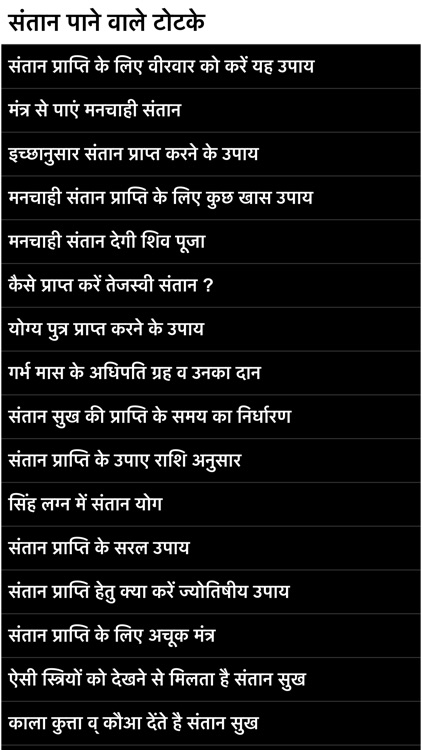 संतान पाने वाले टोटके
संतान प्राप्ति के लिए वीरवार को करें यह उपाय
मंत्र से पाएं मनचाही संतान
इच्छानुसार संतान प्राप्त करने के उपाय
मनचाही संतान प्राप्ति के लिए कुछ खास उपाय
मनचाही संतान देगी शिव पूजा
कैसे प्राप्त करें तेजस्वी संतान ?
योग्य पुत्र प्राप्त करने के उपाय
गर्भ मास के अधिपति ग्रह व उनका दान
संतान सुख की प्राप्ति के समय का निर्धारण
संतान प्राप्ति के उपाए राशि अनुसार
सिंह लग्न में संतान योग
संतान प्राप्ति के सरल उपाय
संतान प्राप्ति हेतु क्या करें ज्योतिषीय उपाय
संतान प्राप्ति के लिए अचूक मंत्र
ऐसी स्त्रियों को देखने से मिलता है संतान सुख
काला कुत्ता व् कौआ देंते है संतान सुख